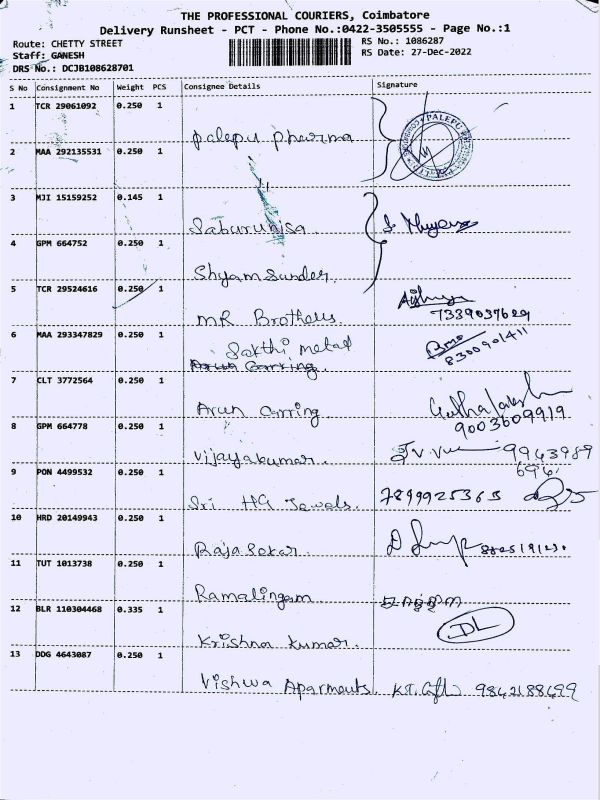 THE PROFESSIONAL COURIERS, Coimbatore
Delivery Runsheet - PCT - Phone No.:0422-3505555 - Page No.:1
Route: CHETTY STREET
RS No.: 1086287
Staff: GANESH
RS Date: 27-Dec-2022
DRS No.: DCJB108628701
S No Consignment No Weight PCS Consignee Details Signature
1 TCR 29061092 0.250 1
Palepu Pharma
PALEPU
2 MAA 292135531 0.250 1
3 MJI 15159252 0.145 1
Saburunisa
4 GPM 664752 0.250 1
Shyam Sunder
5 TCR 29524616 0.250 1
MR Brothers 7339037629
6 MAA 293347829 0.250 1
Sakthi metal 8300901411
7 CLT 3772564 0.250 1
Arun Orring 9003609919
8 GPM 664778 0.250 1
Vijayakumar 9943989
694
9 PON 4499532 0.250 1
Sri HG Jewels 7899925365
10 HRD 20149943 0.250 1
Raja Sekar
11 TUT 1013738 0.250 1
Ramalingam
12 BLR 110304468 0.335 1
Krishna Kumar DL
13 DDG 4643087 0.250 1
Vishwa Aparments 9842188499